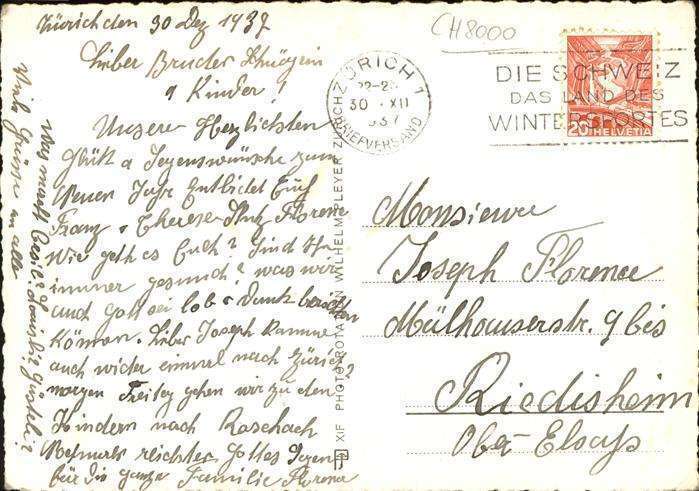 Zürich den 30 Dez 1937
Lieber Bruder Schwägerin
& Kinder!
Unsere Herzlichsten
Glück & Segenswünsche zum
Neuen Jahr Entbietet Euch
Franz & Therese Florence
Wie geth es Euch? Sind Ihr
immer gesund? was wir
auch Gott sei lob & Dank
Können. Lieber Joseph Kumme
auch wider einmal nach Zürich?
morgen Freitag gehen wir zu den
Kindern nach Roschach
reichter Gottes Segen
für die ganze Familie Florence
Was macht
Viele Grüsse an alle
CH8000
ZÜRICH 1
30. XII
BRIEFVERSAND
DIE SCHWEIZ
DAS LAND DES
WINTERSPORTES
20 HELVETIA
XIF PHOTO-ROTA IN WILHELM PLEYER ZÜRICH
Monsieur
Joseph Florence
Mülhauserstr. 9 bis
Riedisheim
Ober-Elsass